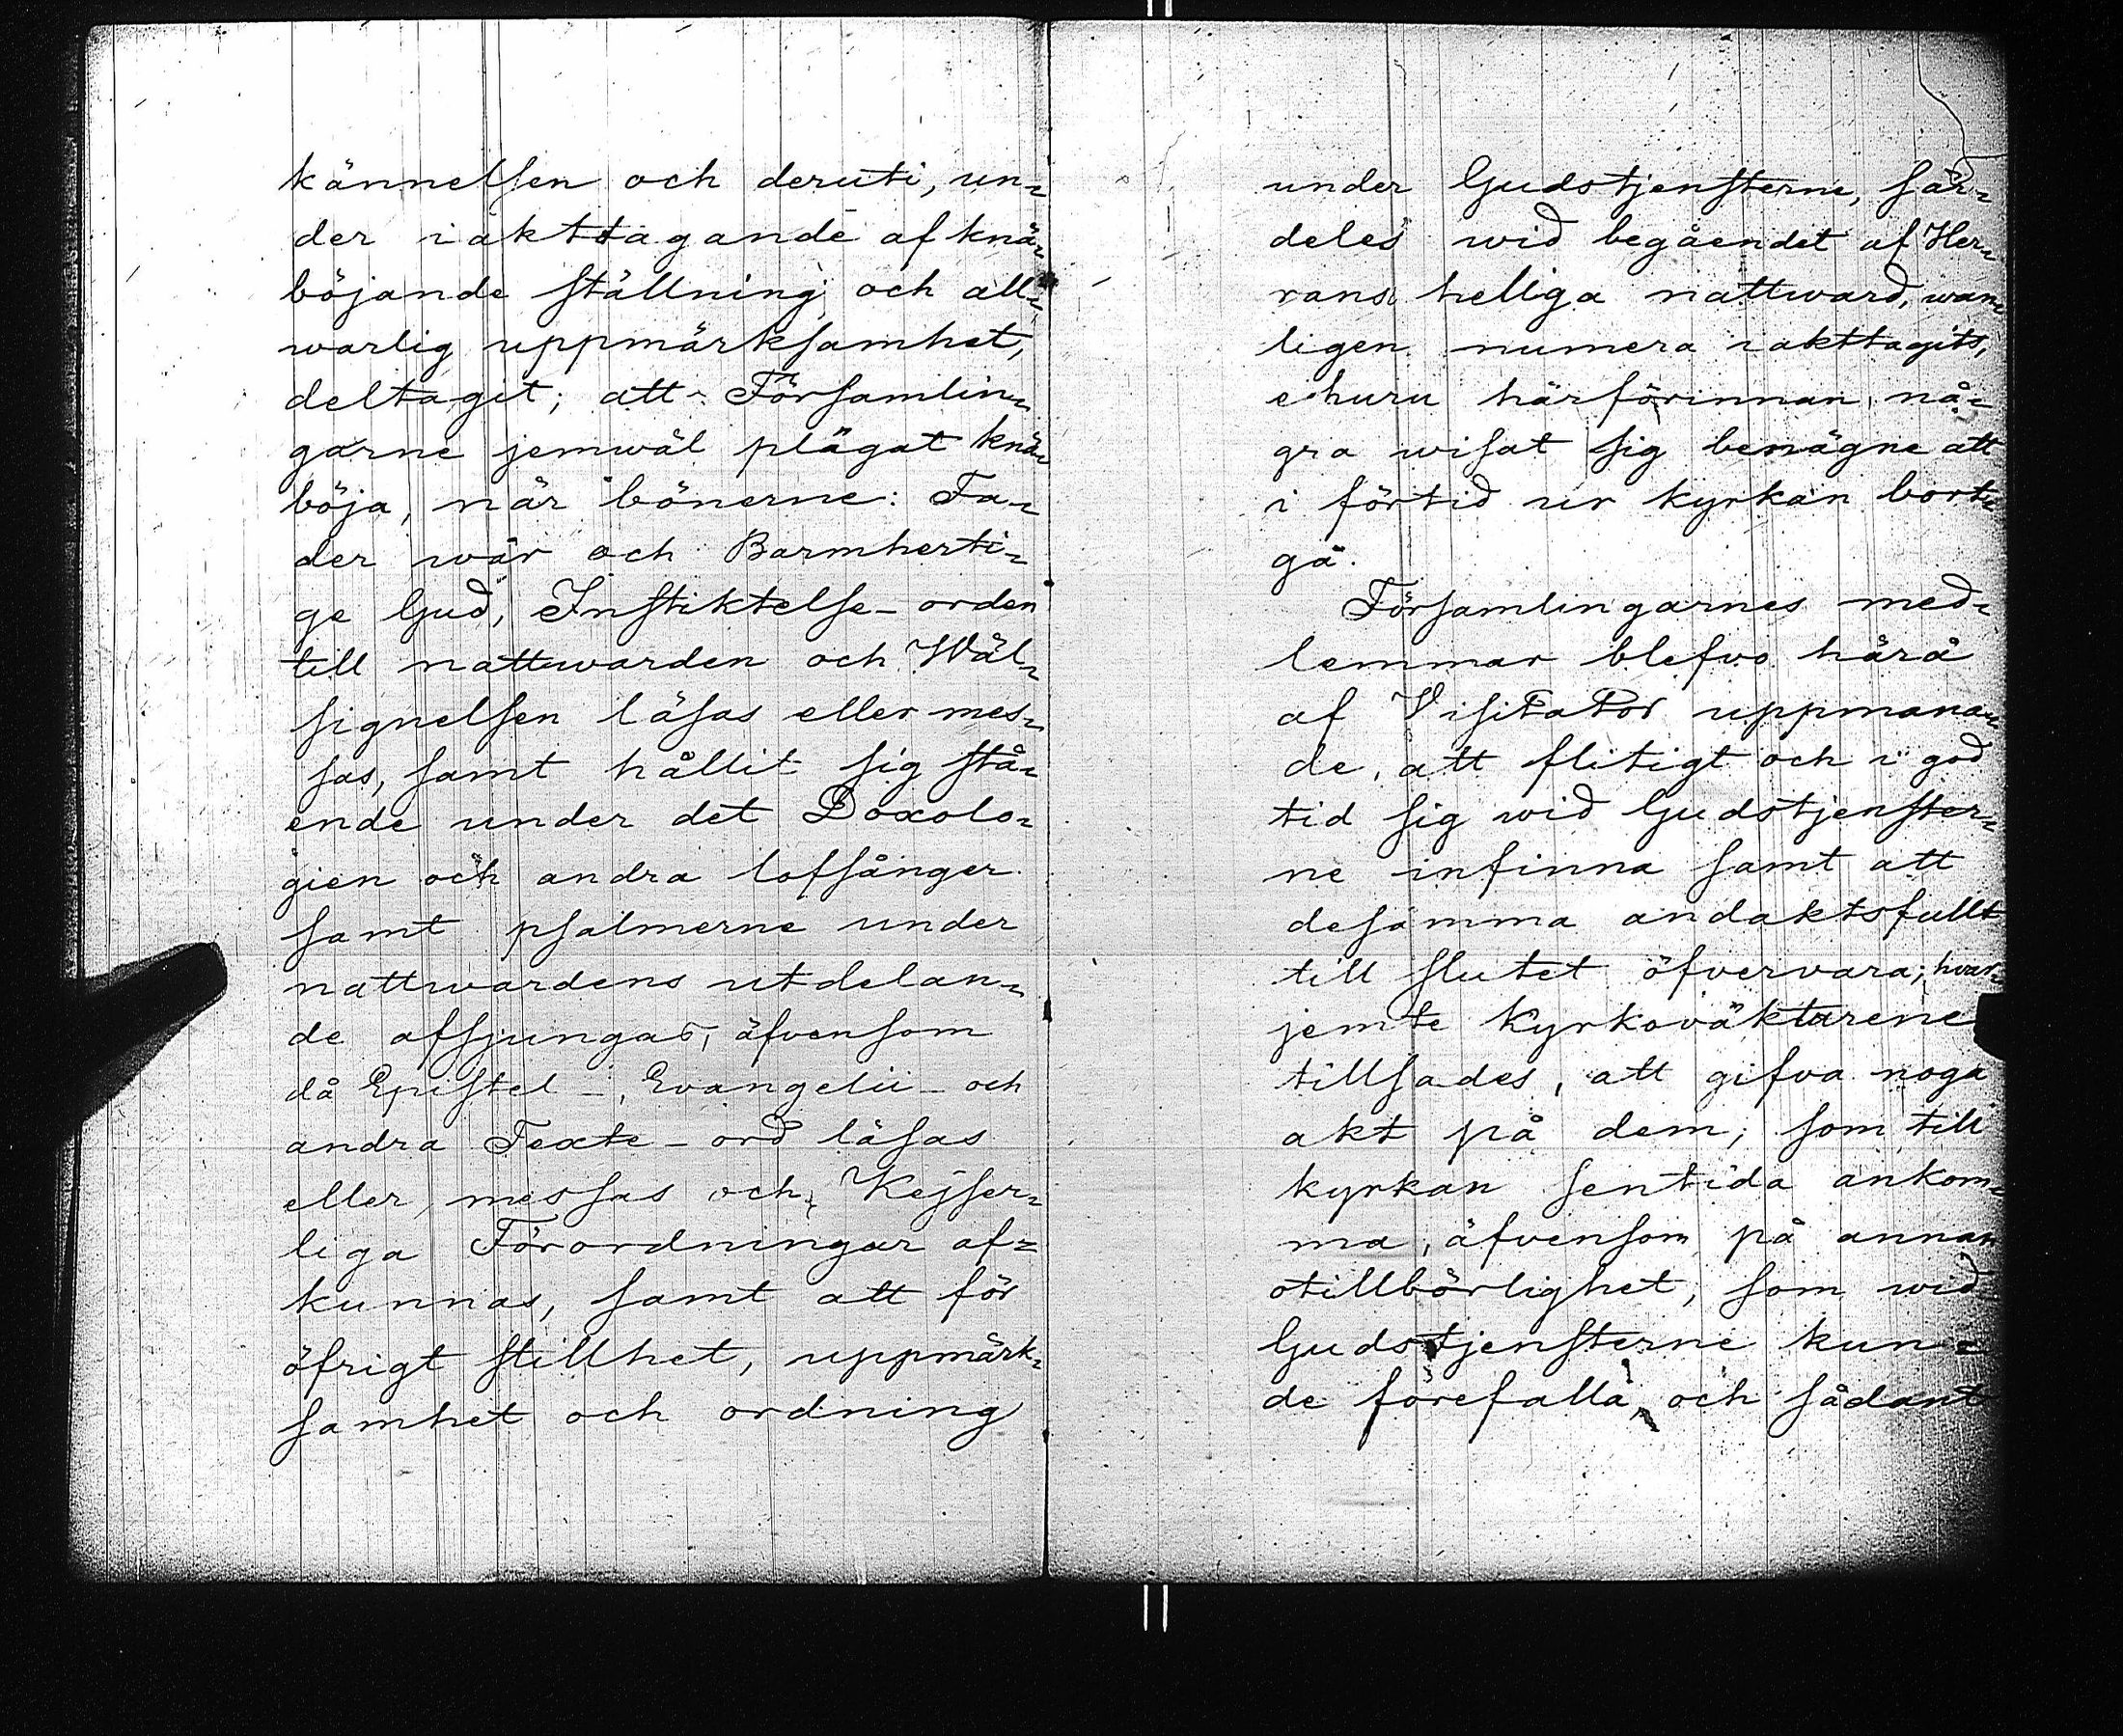 kännelsen och deruti, un-
der iakttagande af knä-
böjande ställning och all-
warlig uppmärksamhet,
deltagit; att Församlin-
garne jemwäl plägat knä-
böja, när bönerne: Fa-
der wår och Barmherti-
ge Gud, Instiktelse-orden
till nattwarden och Wäl-
signelsen läsas eller mes-
sas, samt hållit sig stå-
ende under det Doxolo-
gien och andra lofsånger
samt psalmerne under
nattwardens utdelan-
de afsjungas, äfvensom
då Epistel-, Evangelii- och
andra Texte-ord läsas
eller messas och Kejser-
liga Förordningar af-
kunnas, samt att för
öfrigt stillhet, uppmärk-
samhet och ordning
under Gudstjensterne, sär-
deles wid begåendet af Her-
rans helliga nattward, wan-
ligen numera iakttagits,
ehuru härförinnan nå-
gra wisat sig benägne att
i förtid ur kyrkan bort-
gå.
Församlingarnes med-
lemmar blefvo härå
af Visitator uppmana-
de, att flitigt och i god
tid sig wid Gudstjenster-
ne infinna samt att
desamma andaktsfullt
till slutet öfvervara; hvar-
jemte Kyrkoväktarene
tillsades, att gifva noga
akt på dem, som till
kyrkan sentida ankom-
ma, äfvensom på annan
otillbörlighet, som wid
Gudstjensterne kun-
de förefalla, och sådant